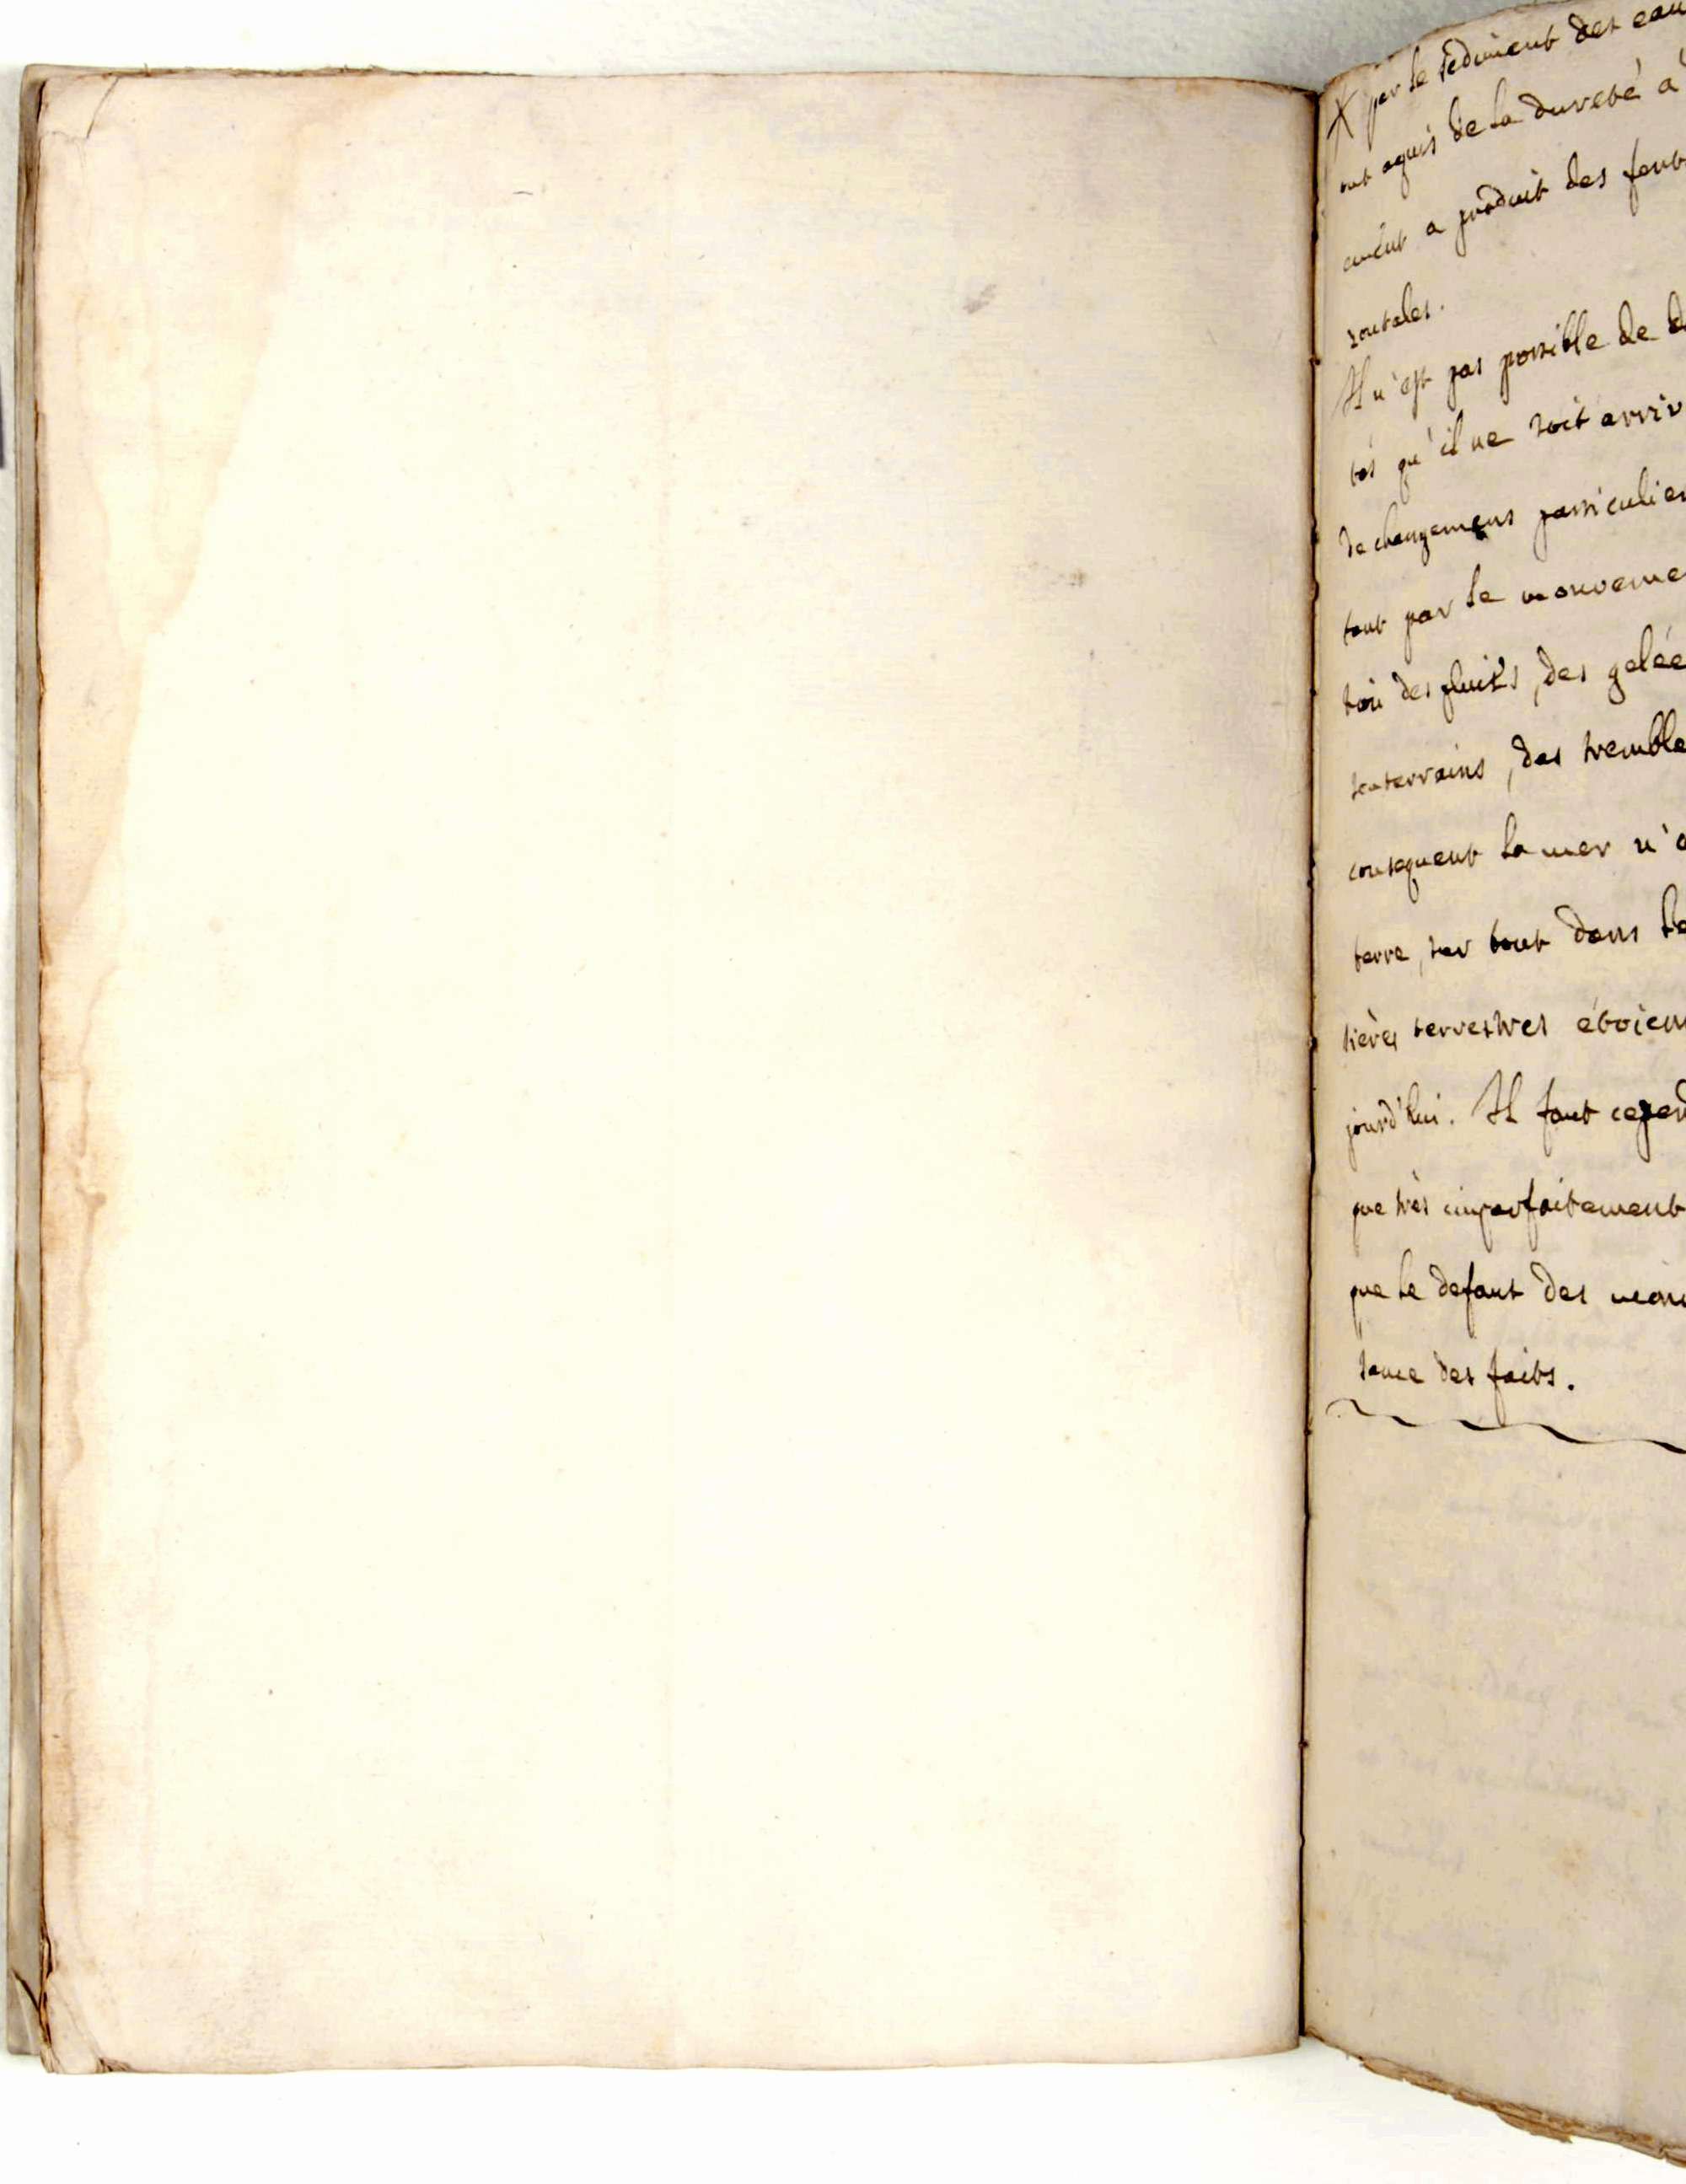 X par le sediment des eau
ont aquis de la dureté à
ement a produit des fent
zontales.
Il n'est pas possible de d
tés qu'il ne soit arriv
de changemens particulier
tant par le mouveme
des pluies, des gelée
souterrains, des tremble
consequent la mer n'a
terre, sur tout dans le
tières terrestres étoien
jourd'hui. Il faut cepend
que très imparfaitement
que le defaut des monu
sance des faits.